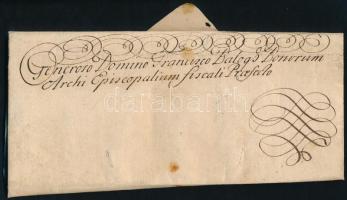 Generoso Domino Francisco Balogh Bonorum
Archi Episcopalium fiscali Præfecto
darabanth